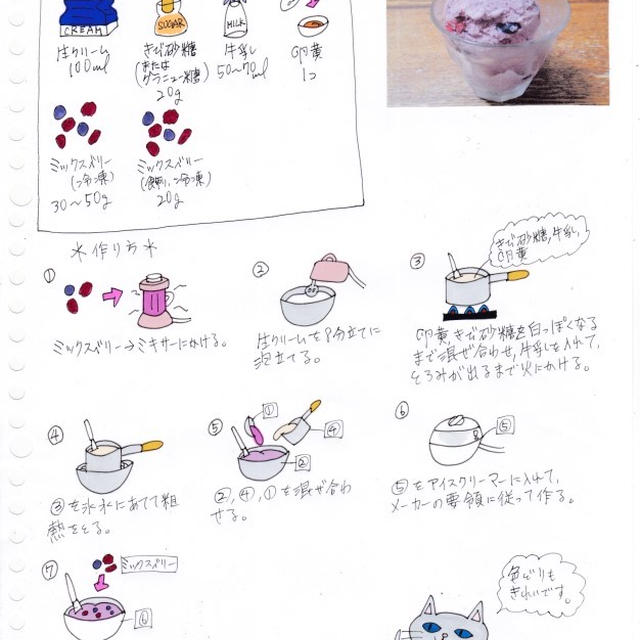 CREAM
SUGAR
MILK
生クリーム
100ml
きび砂糖
(または
グラニュー糖)
20g
牛乳
50〜70ml
卵黄
1コ
ミックスベリー
(冷凍)
30〜50g
ミックスベリー
(飾り、冷凍)
20g
*作り方*
①
ミックスベリー→ミキサーにかける。
②
生クリームを8分立てに
泡立てる。
③
きび砂糖,牛乳,
卵黄
卵黄,きび砂糖を白っぽくなる
まで混ぜ合わせ,牛乳を入れて,
とろみが出るまで火にかける。
④
③を氷水にあてて粗
熱をとる。
⑤
①
④
②
②,④,①を混ぜ合わ
せる。
⑥
⑤
⑤をアイスクリーマーに入れて,
メーカーの要領に従って作る。
⑦
ミックスベリー
⑥
色どりも
きれいです。